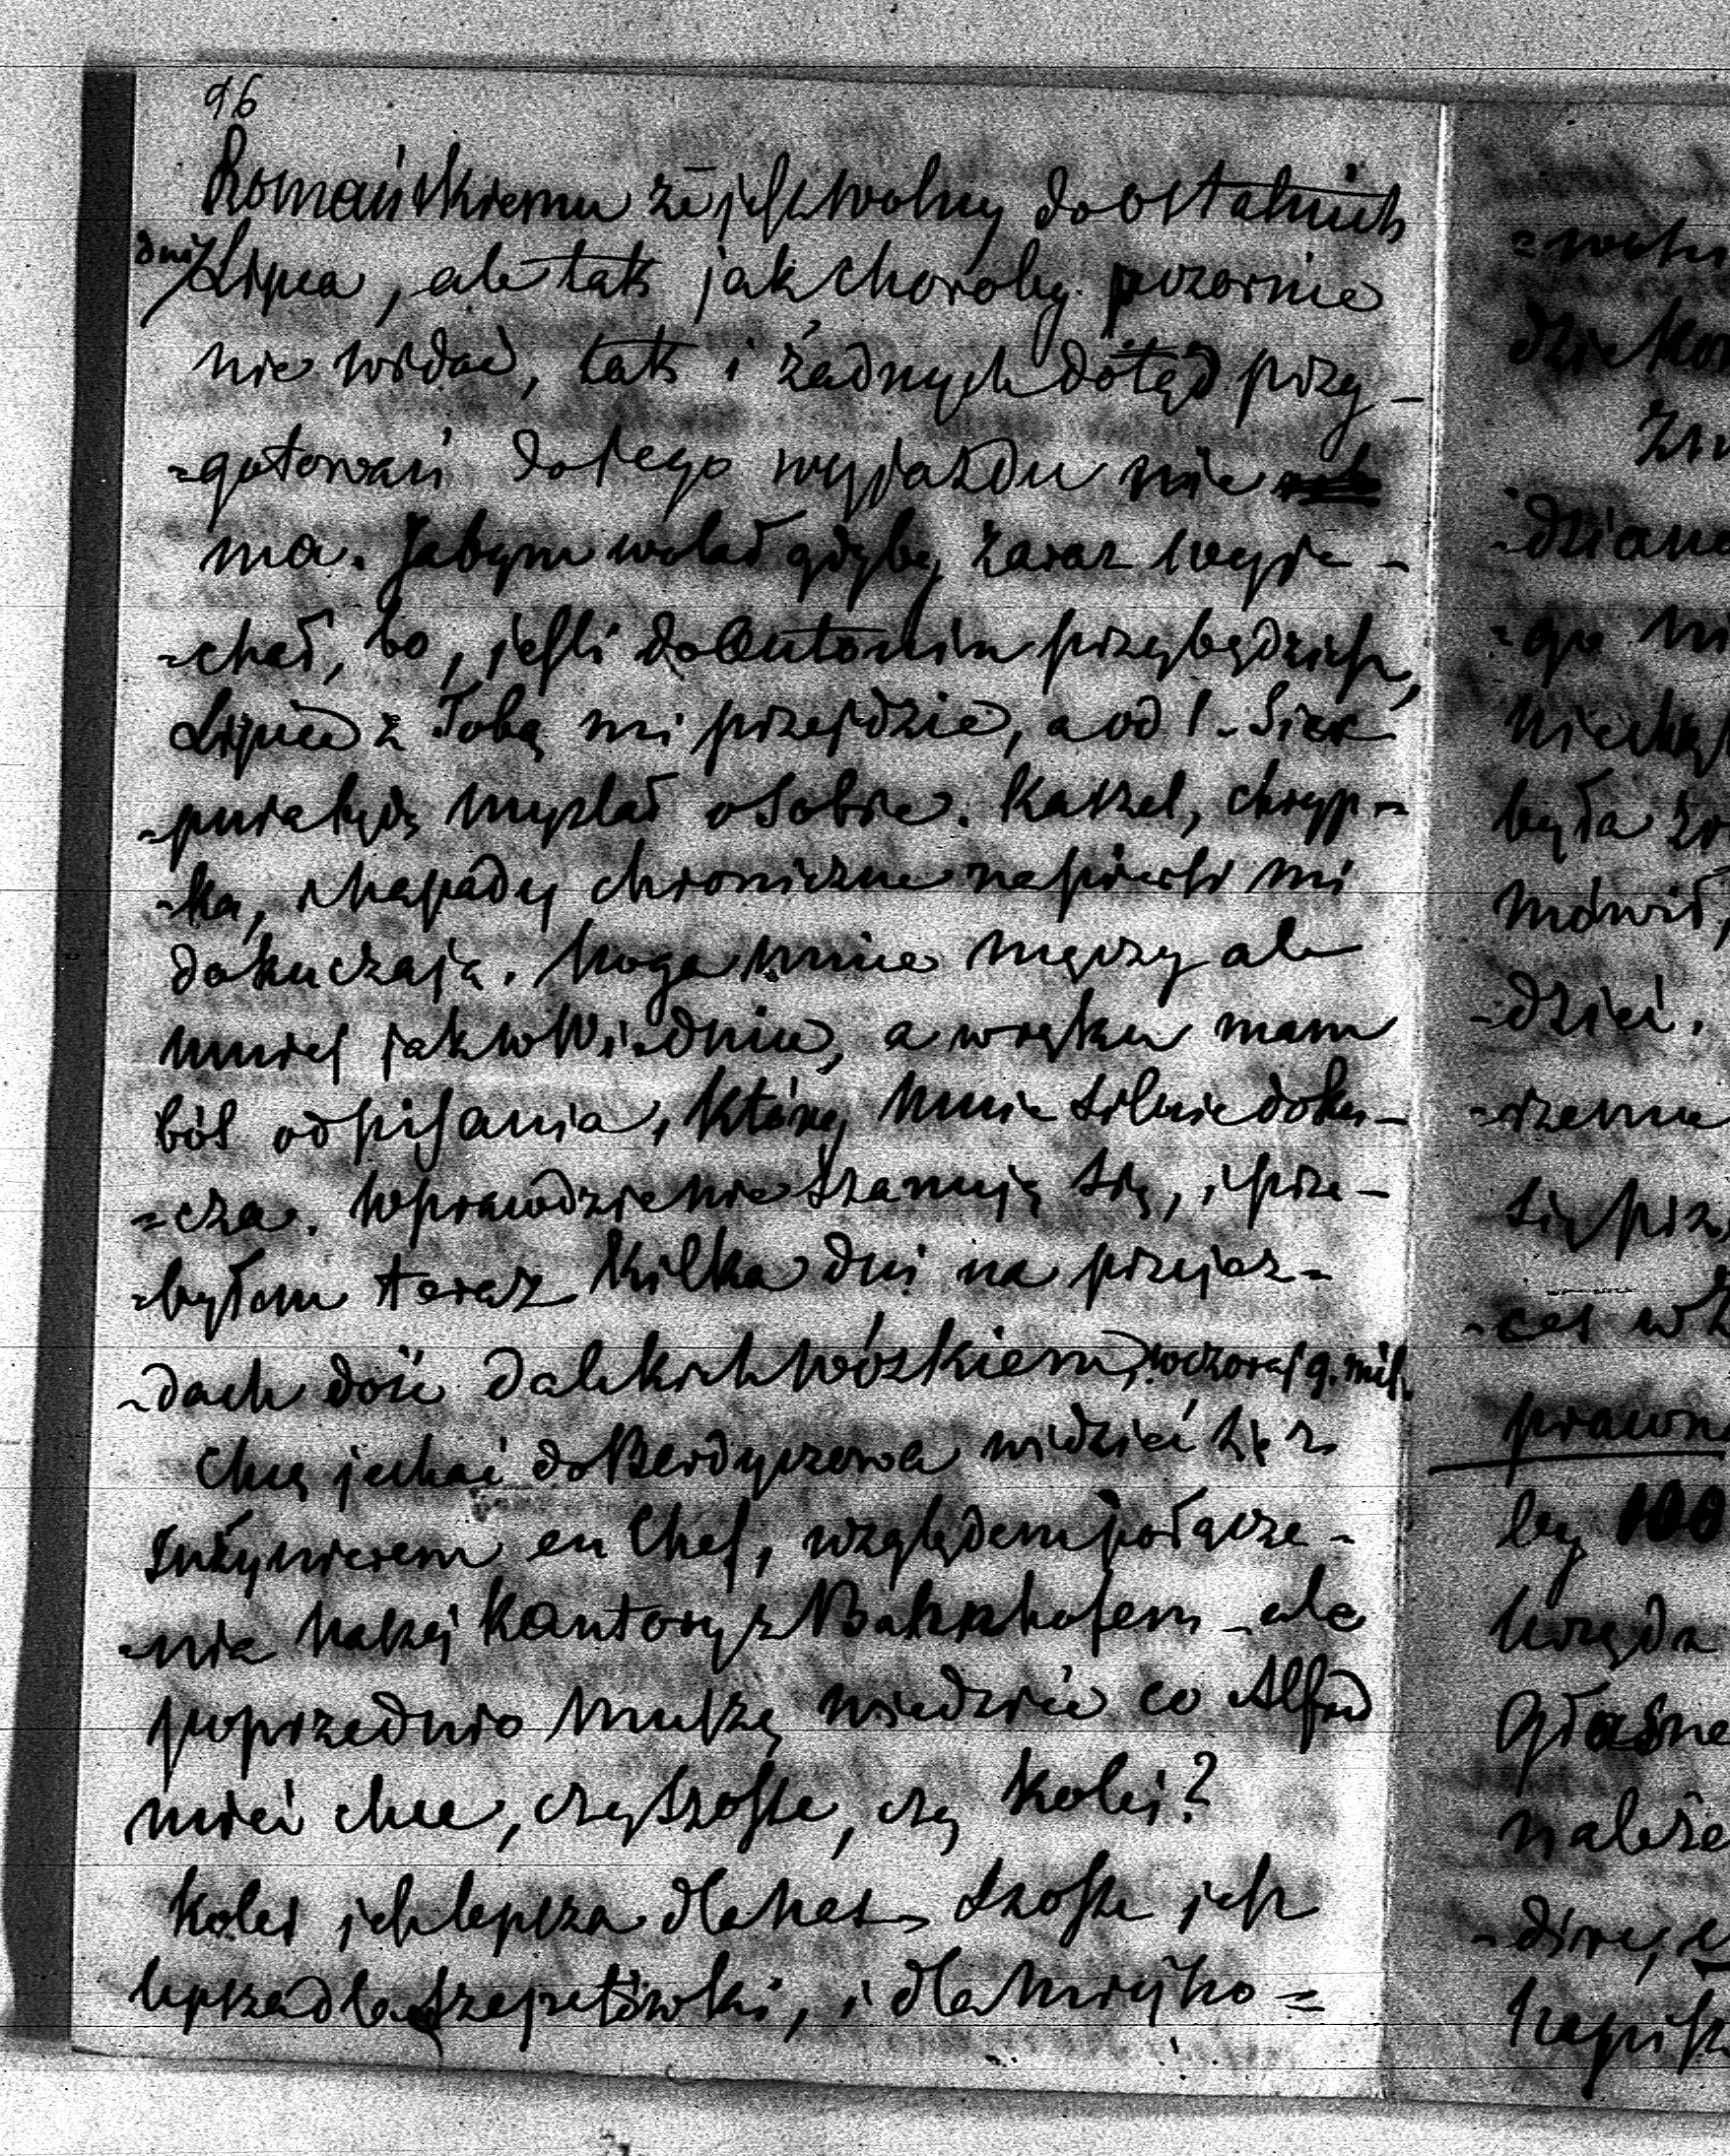 96
Romańskiemu że jest wolny do ostatnich
dni Lipca, ale tak jak choroby pozornie
nie widać, tak i żadnych dotąd przy-
=gotowań do tego wyjazdu nie
ma. Jabym wolał gdyby zaraz wyje-
-chał, bo, jeśli do Antonin przybędziesz,
Lipiec z Tobą mi przejdzie, a od 1. Sier
-pnia będę myslał o Sobie. Kaszel, chryp-
-ka, chroniczne na piersi mi
dokuczają. Noga mnie męczy ale
mniej jak w Wiedniu, a w ręku mam
ból od pisania, który mnie silnie doku-
=cza. Wprawdzie nie szanuję się, i prze-
-byłem teraz kilka dni na przejaz-
-dach dość dalekich wózkiem, wczoraj 9. mil.
Chcę jechać do Berdyczowa widzieć się z
Inżynierem en Chef, względem połącze-
-nia naszej Kantory z Bahnhofem - ale
poprzednio muszę wiedzieć co Alfred
mieć chce, czy szosse, czy kolej?
Kolej jest lepsza dla nas, szosse jest
lepsza dla Szepetówki, i dla
=wotn
dzie
-dziane
-go
była
mówił,
-dzieć.
-rzenie
się prz
prawn
by 100